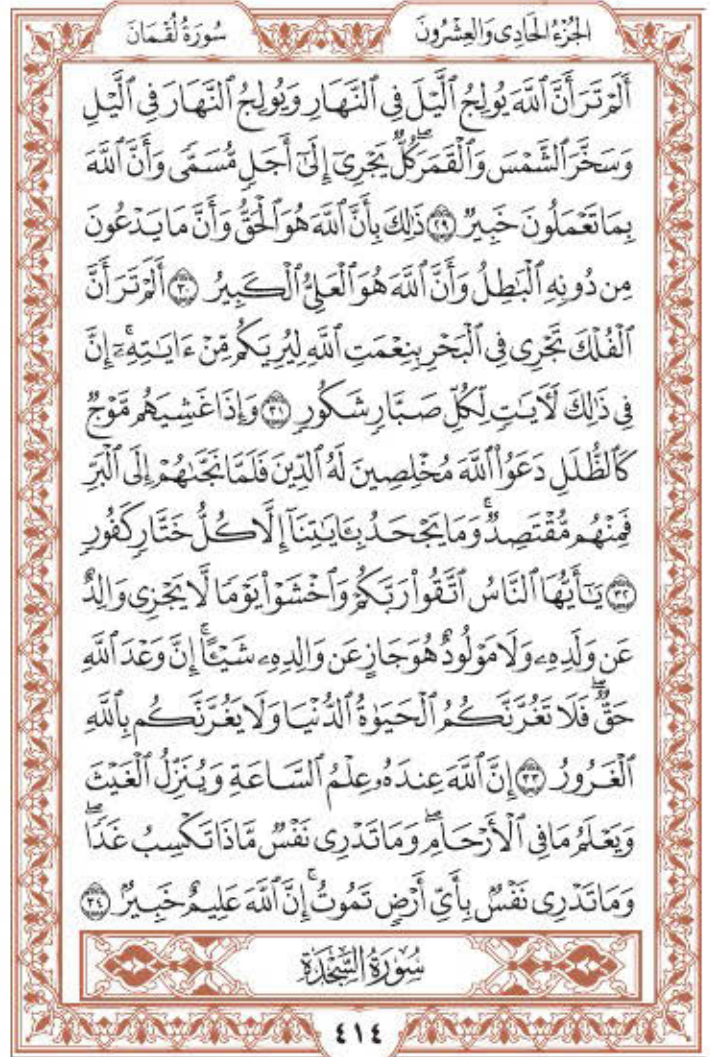 سُورَةُ لُقْمَانَ
الجُزْءُ الحَادِى وَالعِشْرُونَ
أَلَمْ تَرَ أَنَّ ٱللَّهَ يُولِجُ ٱلَّيْلَ فِى ٱلنَّهَارِ وَيُولِجُ ٱلنَّهَارَ فِى ٱلَّيْلِ
وَسَخَّرَ ٱلشَّمْسَ وَٱلْقَمَرَۖ كُلٌّ يَجْرِىٓ إِلَىٰٓ أَجَلٍ مُّسَمًّى وَأَنَّ ٱللَّهَ
بِمَا تَعْمَلُونَ خَبِيرٌ ٢٩ ذَٰلِكَ بِأَنَّ ٱللَّهَ هُوَ ٱلْحَقُّ وَأَنَّ مَا يَدْعُونَ
مِن دُونِهِ ٱلْبَٰطِلُ وَأَنَّ ٱللَّهَ هُوَ ٱلْعَلِىُّ ٱلْكَبِيرُ ٣٠ أَلَمْ تَرَ أَنَّ
ٱلْفُلْكَ تَجْرِى فِى ٱلْبَحْرِ بِنِعْمَتِ ٱللَّهِ لِيُرِيَكُم مِّنْ ءَايَٰتِهِۦٓۚ إِنَّ
فِى ذَٰلِكَ لَءَايَٰتٍ لِّكُلِّ صَبَّارٍ شَكُورٍ ٣١ وَإِذَا غَشِيَهُم مَّوْجٌ
كَٱلظُّلَلِ دَعَوُا۟ ٱللَّهَ مُخْلِصِينَ لَهُ ٱلدِّينَ فَلَمَّا نَجَّىٰهُمْ إِلَى ٱلْبَرِّ
فَمِنْهُم مُّقْتَصِدٌۚ وَمَا يَجْحَدُ بِـَٔايَٰتِنَآ إِلَّا كُلُّ خَتَّارٍ كَفُورٍ
٣٢ يَٰٓأَيُّهَا ٱلنَّاسُ ٱتَّقُوا۟ رَبَّكُمْ وَٱخْشَوْا۟ يَوْمًا لَّا يَجْزِى وَالِدٌ
عَن وَلَدِهِۦ وَلَا مَوْلُودٌ هُوَ جَازٍ عَن وَالِدِهِۦ شَيْـًٔاۚ إِنَّ وَعْدَ ٱللَّهِ
حَقٌّۖ فَلَا تَغُرَّنَّكُمُ ٱلْحَيَوٰةُ ٱلدُّنْيَا وَلَا يَغُرَّنَّكُم بِٱللَّهِ
ٱلْغَرُورُ ٣٣ إِنَّ ٱللَّهَ عِندَهُۥ عِلْمُ ٱلسَّاعَةِ وَيُنَزِّلُ ٱلْغَيْثَ
وَيَعْلَمُ مَا فِى ٱلْأَرْحَامِۖ وَمَا تَدْرِى نَفْسٌ مَّاذَا تَكْسِبُ غَدًاۖ
وَمَا تَدْرِى نَفْسٌۢ بِأَىِّ أَرْضٍ تَمُوتُۚ إِنَّ ٱللَّهَ عَلِيمٌ خَبِيرٌۢ ٣٤
سُورَةُ السَّجْدَةِ
٤١٤